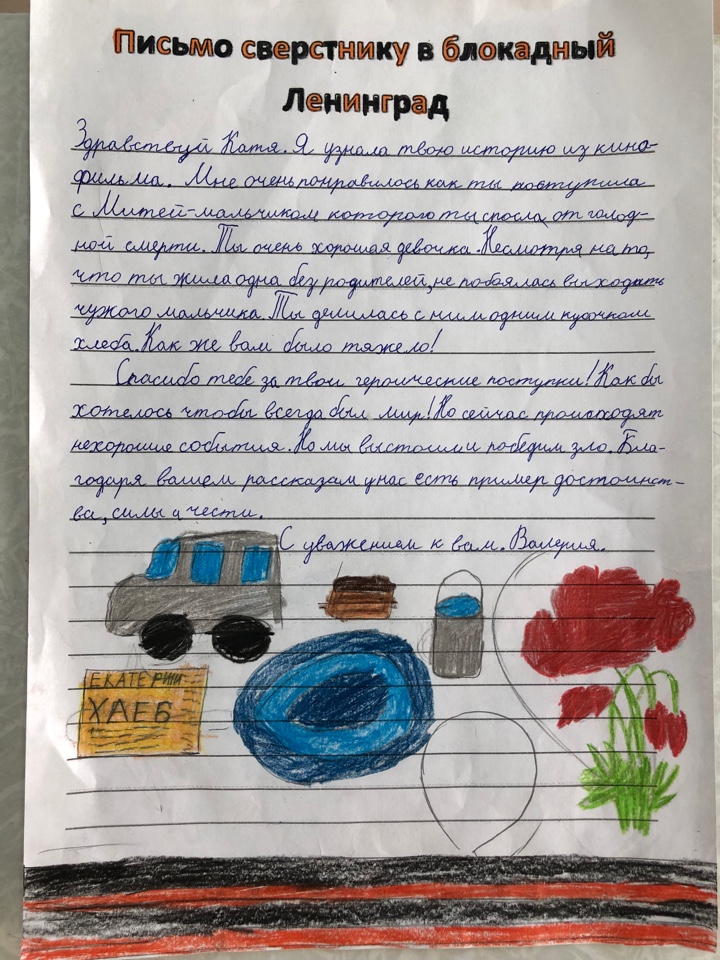 Письмо сверстнику в блокадный
Ленинград
Здравствуй Катя. Я узнала твою историю из кино-
фильма. Мне очень понравилось как ты поступила
с Митей-мальчиком которого ты спосла от голод-
ной смерти. Ты очень хорошая девочка. Несмотря на то,
что ты жила одна без родителей, не побоялась выходить
чужого мальчика. Ты делилась с ним одним кусочком
хлеба. Как же вам было тяжело!
Спасибо тебе за твои героические поступки! Как бы
хотелось чтобы всегда был мир! Но сейчас происходят
нехорошие события. Но мы выстоим и победим зло. Бла-
годаря вашем рассказам у нас есть пример достоинст-
ва, силы и чести.
С уважением к вам. Валерия.
ЕКАТЕРИН
ХЛЕБ